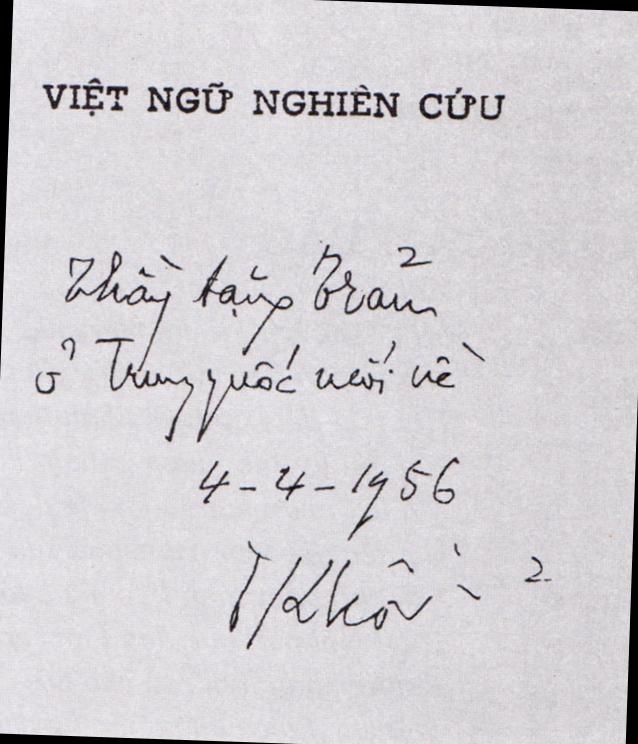 VIỆT NGỮ NGHIÊN CỨU
Thầy tặng Trản
ở Trung quốc mới về
4-4-1956